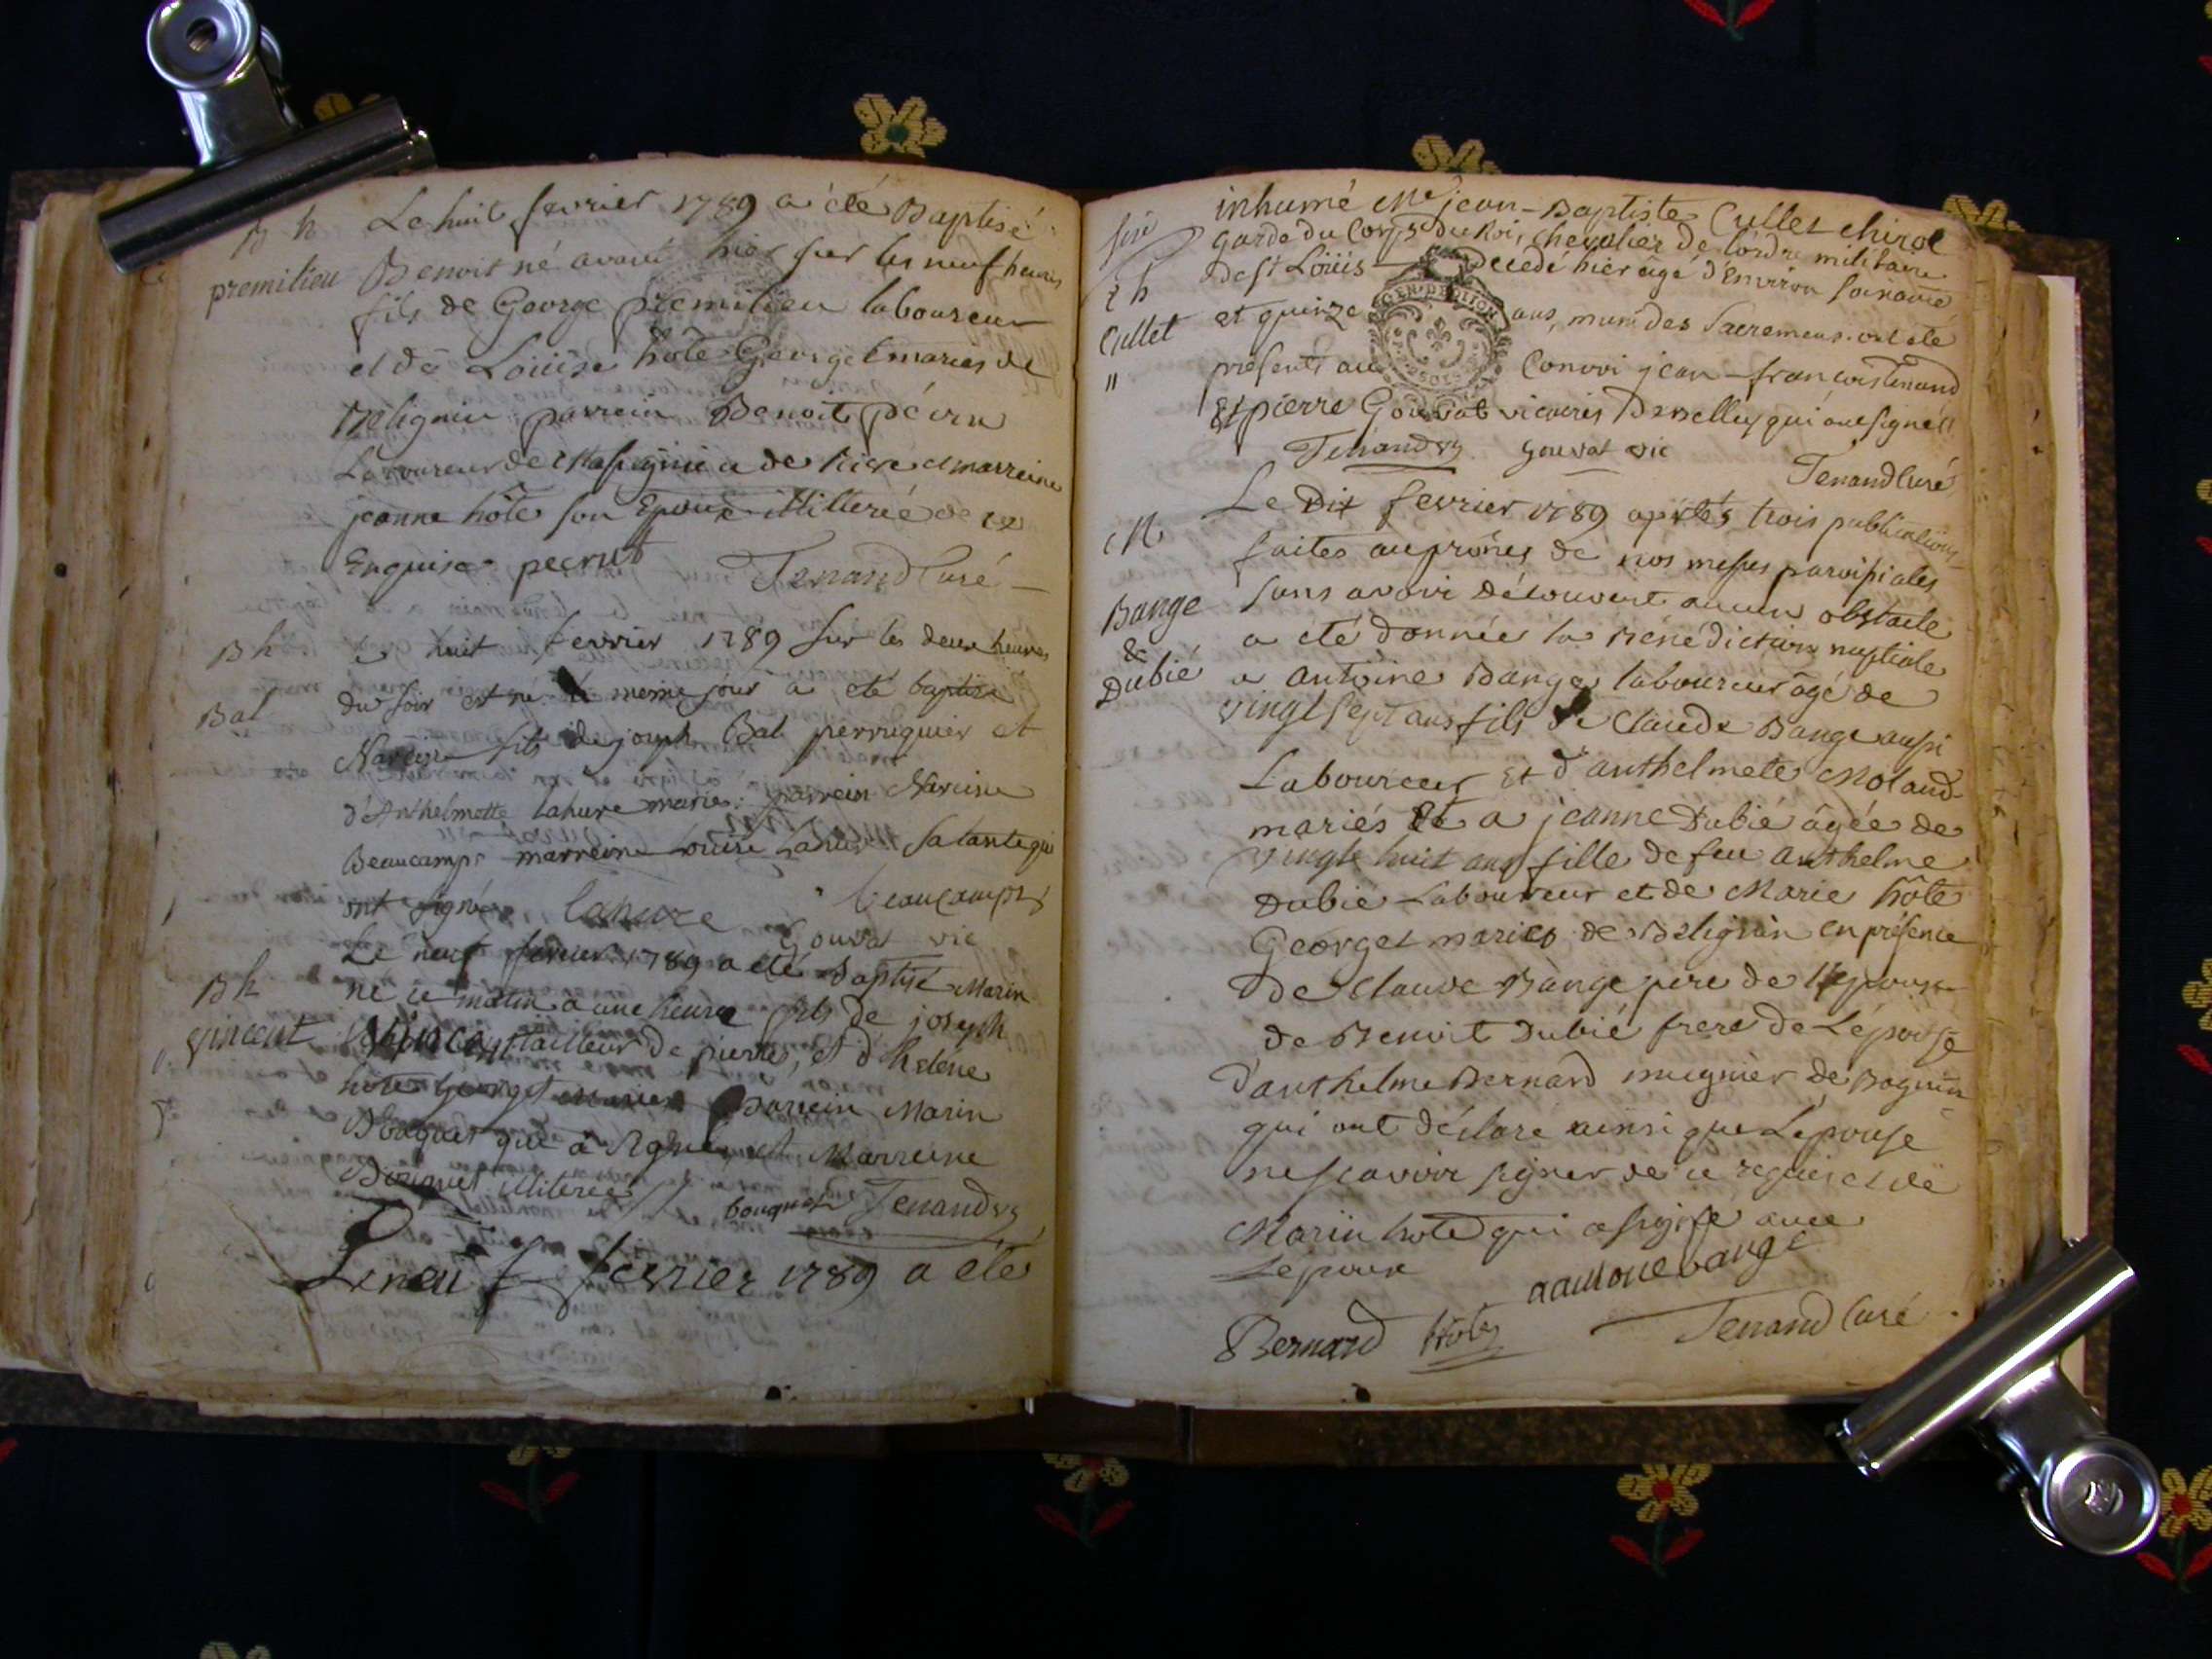 B h
premilieu
Le huit fevrier 1789 a été Baptisé
Benoit né avant hier sur les neuf heures
fils de George premilieu laboureur
et de Loüise hôte Georget mariés de
Beligniu parrein Benoit pécru
Laboureur de Massignieu de Rive et marreine
jeanne hôte son Epouse illiterée de ce
Enquise pecrut Tenand Curé
B h
Bal
huit fevrier 1789 sur les deux heures
du soir est né le meme jour a été baptisé
Narcisse fils de joseph Bal perruquier et
d'Anthelmette Lahure mariés: parrein Narcisse
Beaucamps marreine Louise Lahure sa tante qui
ont signé lahure beaucamps
Gouvat vic
B h
vincent
Le neuf fevrier 1789 a été Baptisé Marin
né ce matin a une heure fils de joseph
Vincent tailleur de pierres, et d'heléne
hôte Georget mariés parrein Marin
Bouquet qui a signé, et Marreine
Bouquet illiterée bouquet Tenand
Le neuf fevrier 1789 a été
Cullet
"
inhumé Mr jean-Baptiste Cullet chirol
garde du Corps du Roi, chevalier de l'ordre militaire
de st Loüis decedé hier âgé d'Environ soixante
GEN. DE DIJON
et quinze ans, muni des Sacremens. ont été
présents au Convoi jean-francois tenand
Et pierre Gouvat vicaires De Belley qui ont signés
Tenand Gouvat vic
Tenand Curé
M
Bange
&
Dubié
Le Dix fevrier 1789 après trois publications
faites aux prônes de nos messes paroissiales
sans avoir découvert aucun obstacle
a été donnée la Bénédiction nuptiale
a antoine Bange laboureur âgé de
vingt sept ans fils de Claude Bange aussi
Laboureur Et d'anthelmete Moland
mariés Et a jeanne Dubié âgée de
vingt huit ans fille de feu anthelme
Dubié Laboureur et de Marie hôte
Georget mariés de Belignin en présence
de Claude Bange pere de l'epoux
de Benoit Dubié frere de L'épouse
d'anthelme Bernard mugnier de
qui ont déclaré ainsi que L'épouse
ne scavoir signer de ce requis et de
Marin hote qui a signé avec
L'epoux
antoine bange
Bernard hote
Tenand Curé